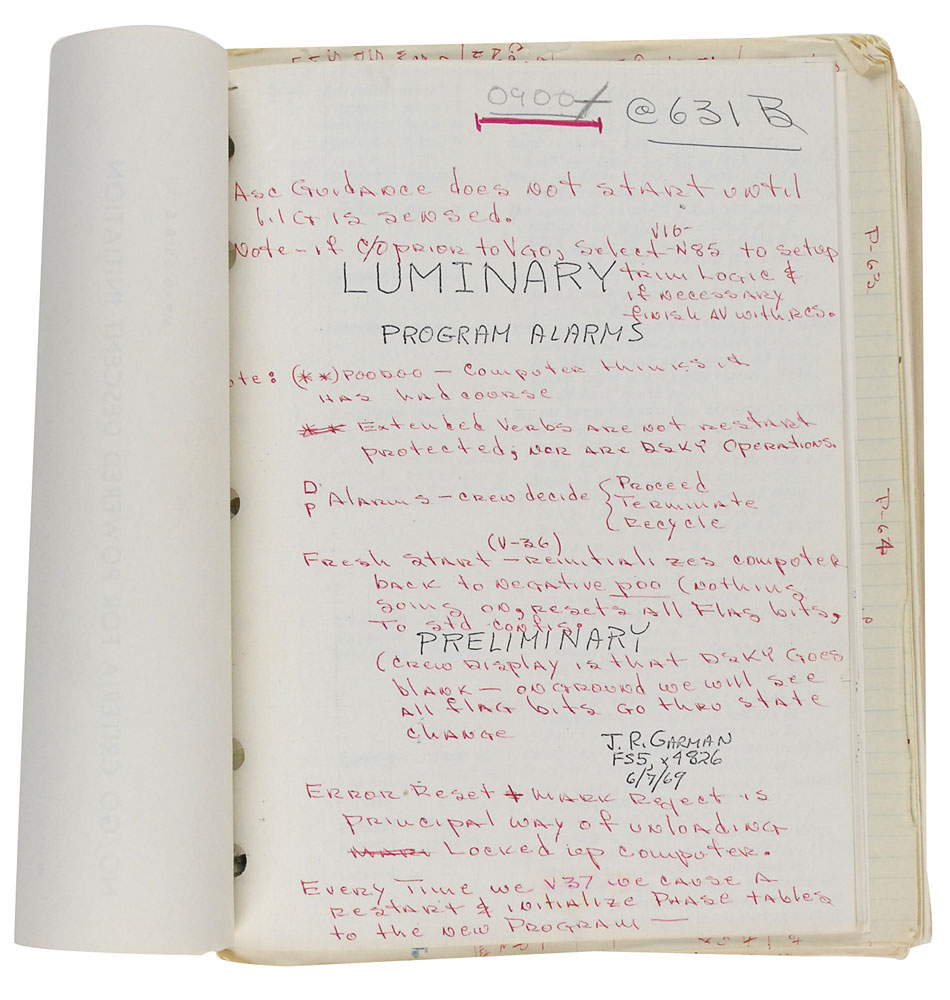 0900
@ 631 B
Asc Guidance does not start until
.1 G is sensed.
Note - if C/O prior to VGO, Select V16-N85 to setup
trim Logic &
if necessary
finish ΔV with RCS.
LUMINARY
PROGRAM ALARMS
ote: (**) POODOO - Computer thinks it
has had course
** Extended Verbs are not restart
protected; nor are DSKY Operations.
D
P Alarms - crew decide { Proceed
Terminate
Recycle
(V-36)
Fresh Start - Reinitializes computer
back to negative poo (nothing
going on, resets all Flag bits,
To std config.
PRELIMINARY
(Crew Display is that DSKY Goes
blank - on ground we will see
all flag bits go thru state
change
J. R. GARMAN
FS5, x4826
6/7/69
Error Reset + Mark Reject is
principal way of unloading
Locked up computer.
Every Time we V37 we cause a
restart & initialize Phase tables
to the new Program —
P-63
P-64